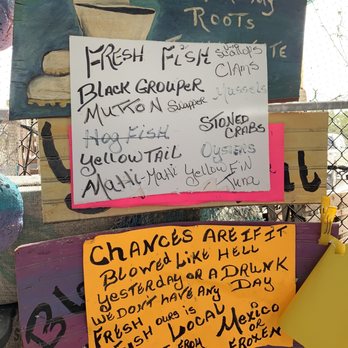 ROOTS
FRESH FISH
Scallops
Clams
BLACK GROUPER
Mussels
MUTTON Snapper
STONED
CRABS
Hog Fish
OYSTERS
YELLOWTAIL
Mahi-Mahi Yellow Fin
Tuna
CHANCES ARE IF IT
BLOWED LIKE HELL
YESTERDAY OR A DRUNK
WE DON'T HAVE ANY DAY
FRESH OURS IS
FISH LOCAL
FROM MEXICO
OR
FROZEN